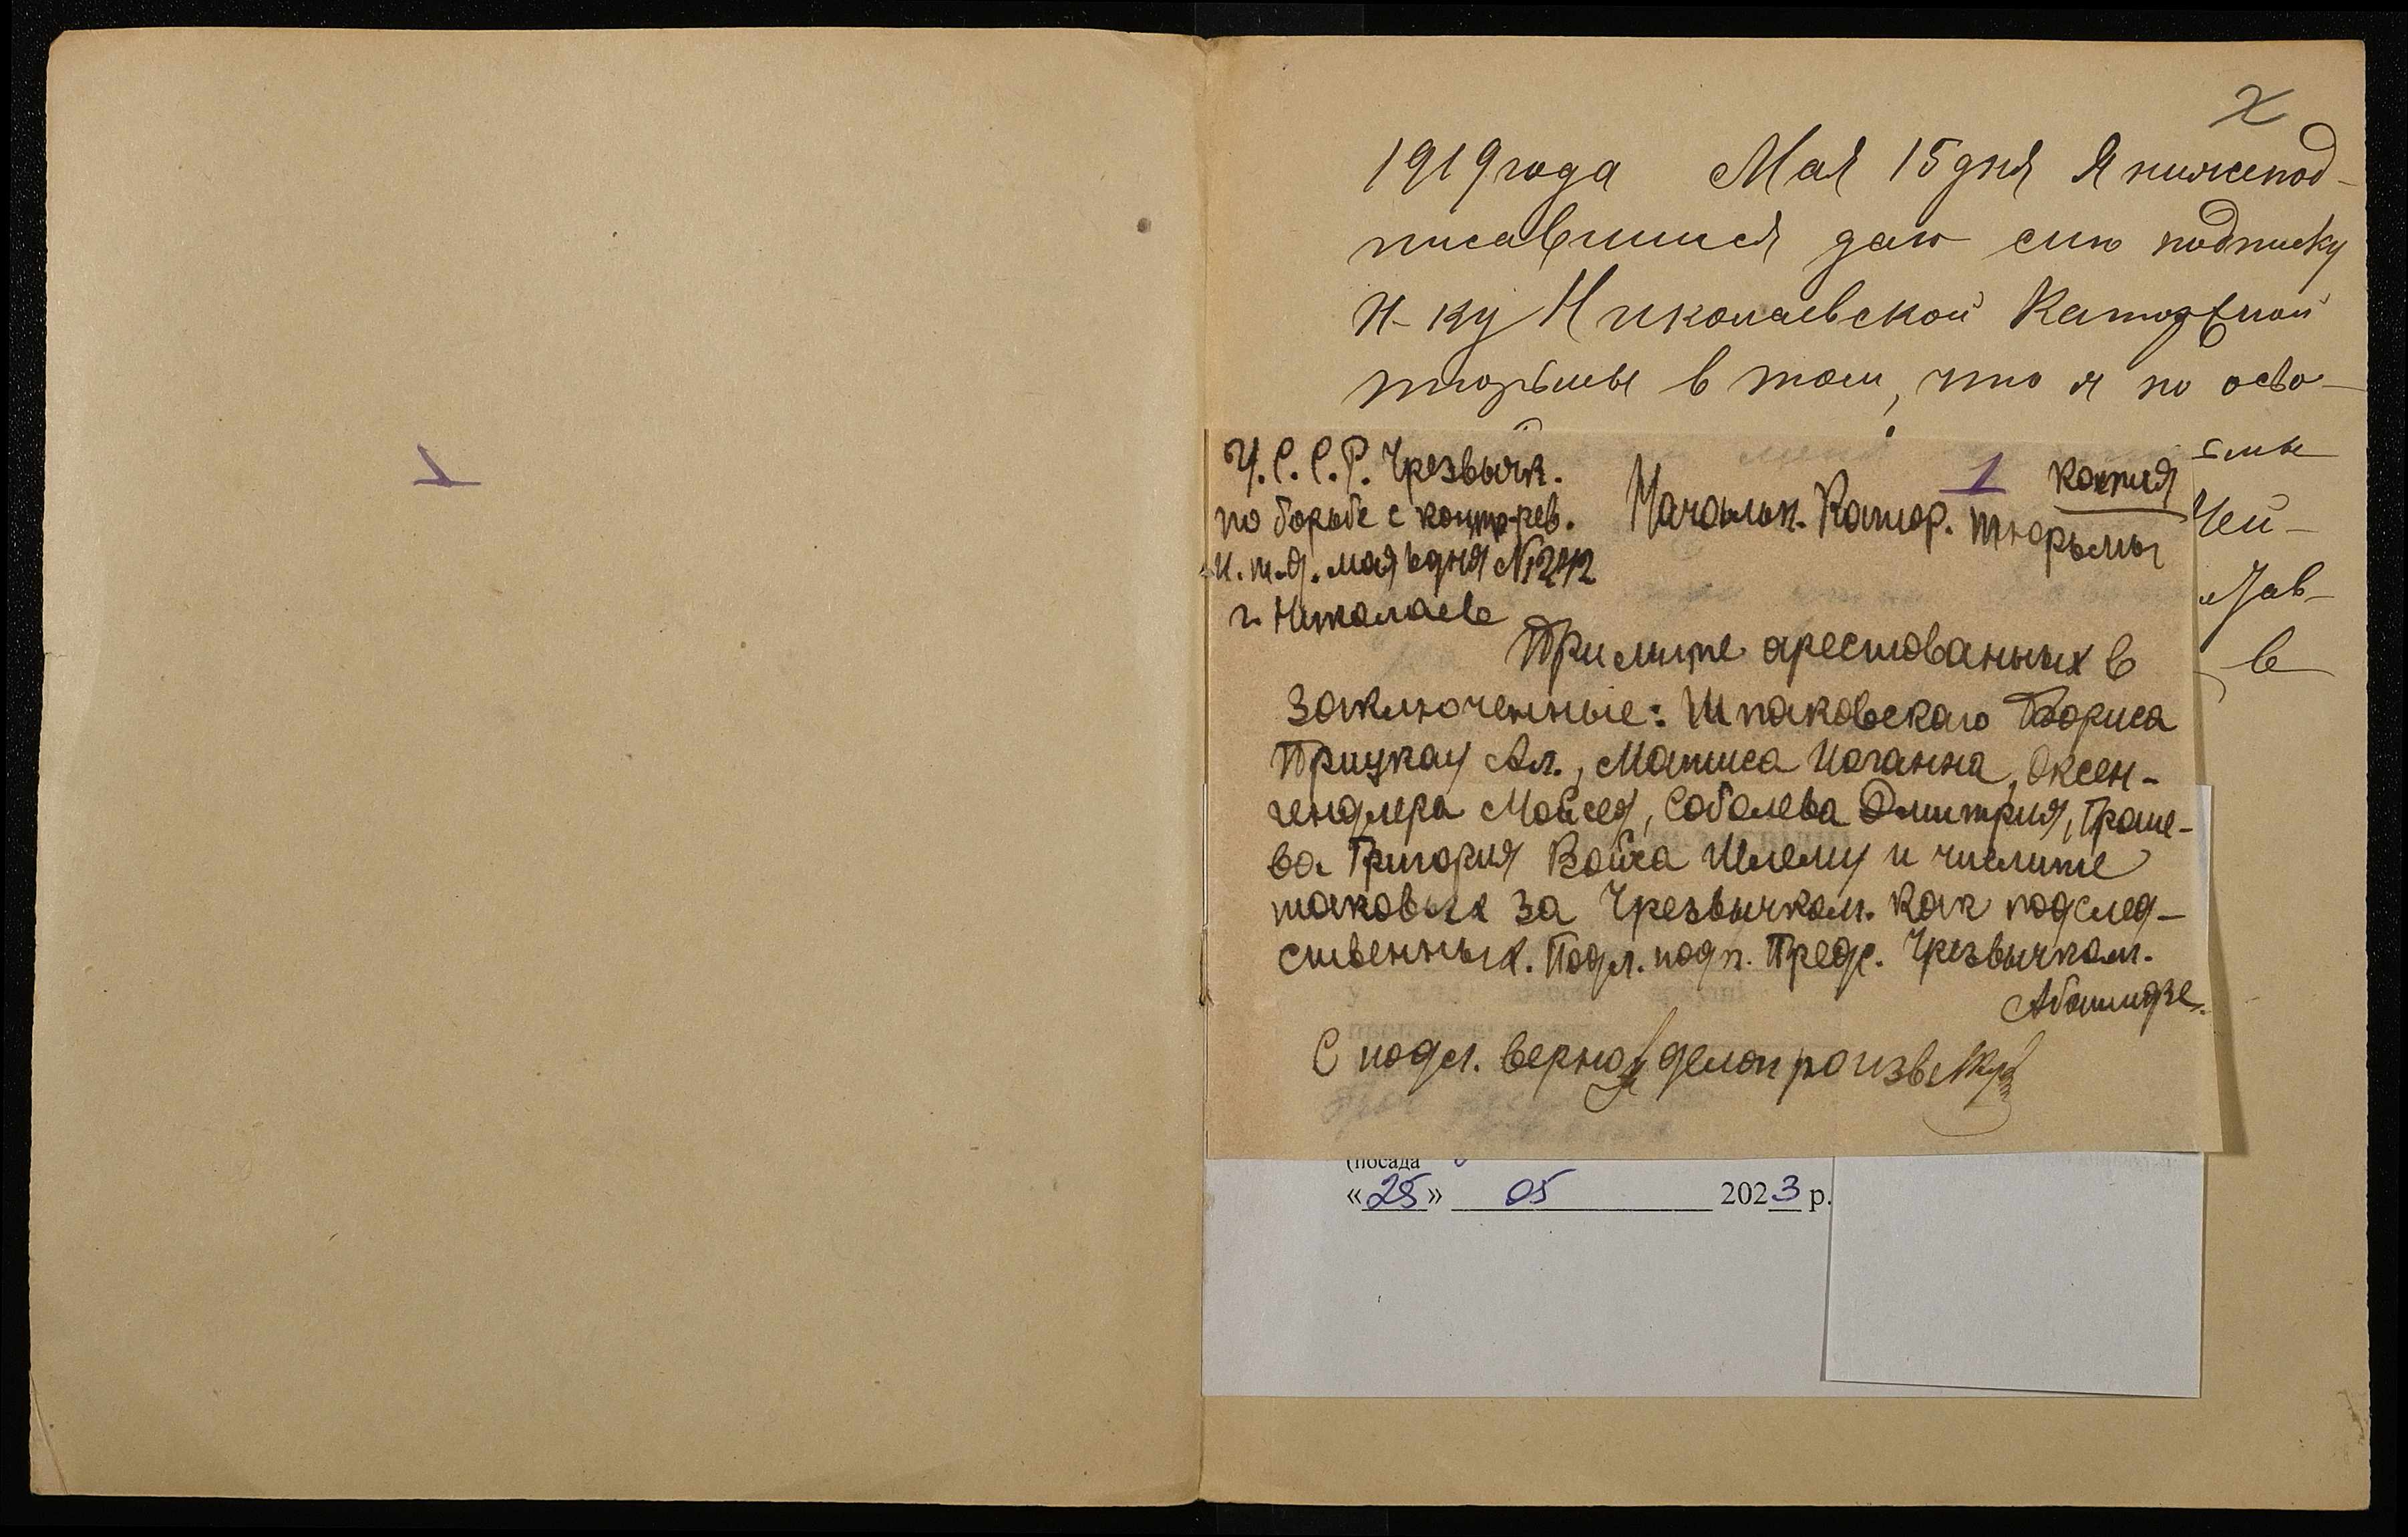 1919 года Мая 15 дня Я нижепод-
писавшийся даю сию подписку
Н-ку Николаевской Каторжной
тюрьмы в том, что я по осво-
У.С.С.Р. Чрезвычк.
по борьбе с контр-рев.
и.т.д. мая дня №
г. Николаев
1
копия
Начальн. Катор. тюрьмы
Чей-
в
Примите арестованных в
заключенные: Шпаковскаго Бориса
Прицкау Ал., Матиса Иоганна, Оксен-
гендлера Мойсея, Соболева Дмитрия, Граше-
ва Григория Войса Шлему и числите
таковых за Чрезвычком. как подслед-
ственных. Подл. подп. Предс. Чрезвычком.
Абашидзе.
С подл. верно делопроизв
(посада
«25» 05 2023 р.
1